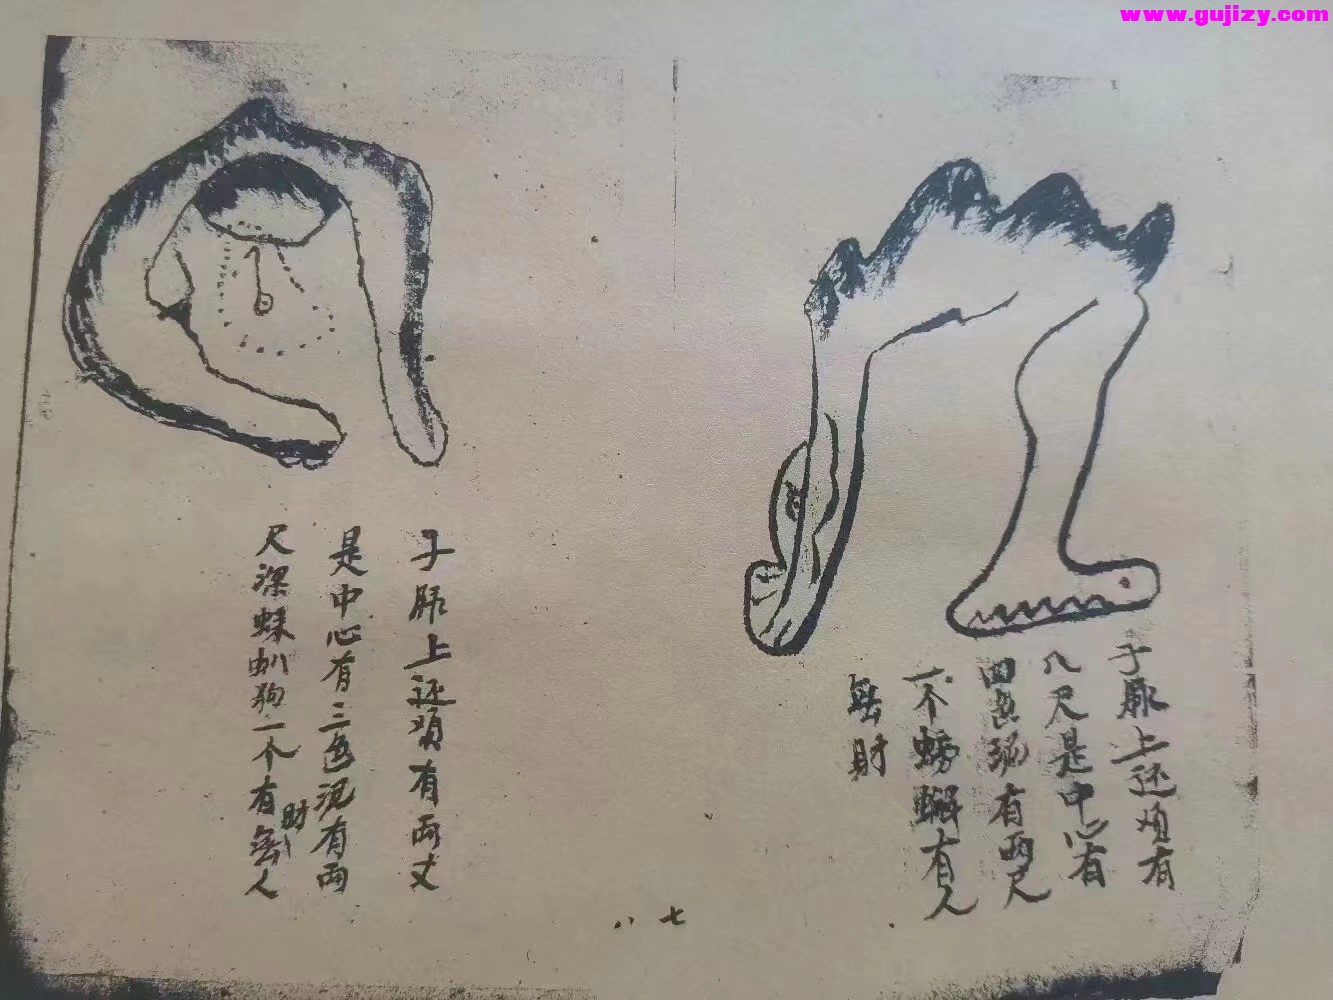 www.gujizy.com
子脉上还须有
八尺是中心有
四色泥有两尺
一个螃蟹有人
無財
七
八
子脉上还须有两丈
是中心有三色泥有两
尺深蛛叭狗一个有無人
財